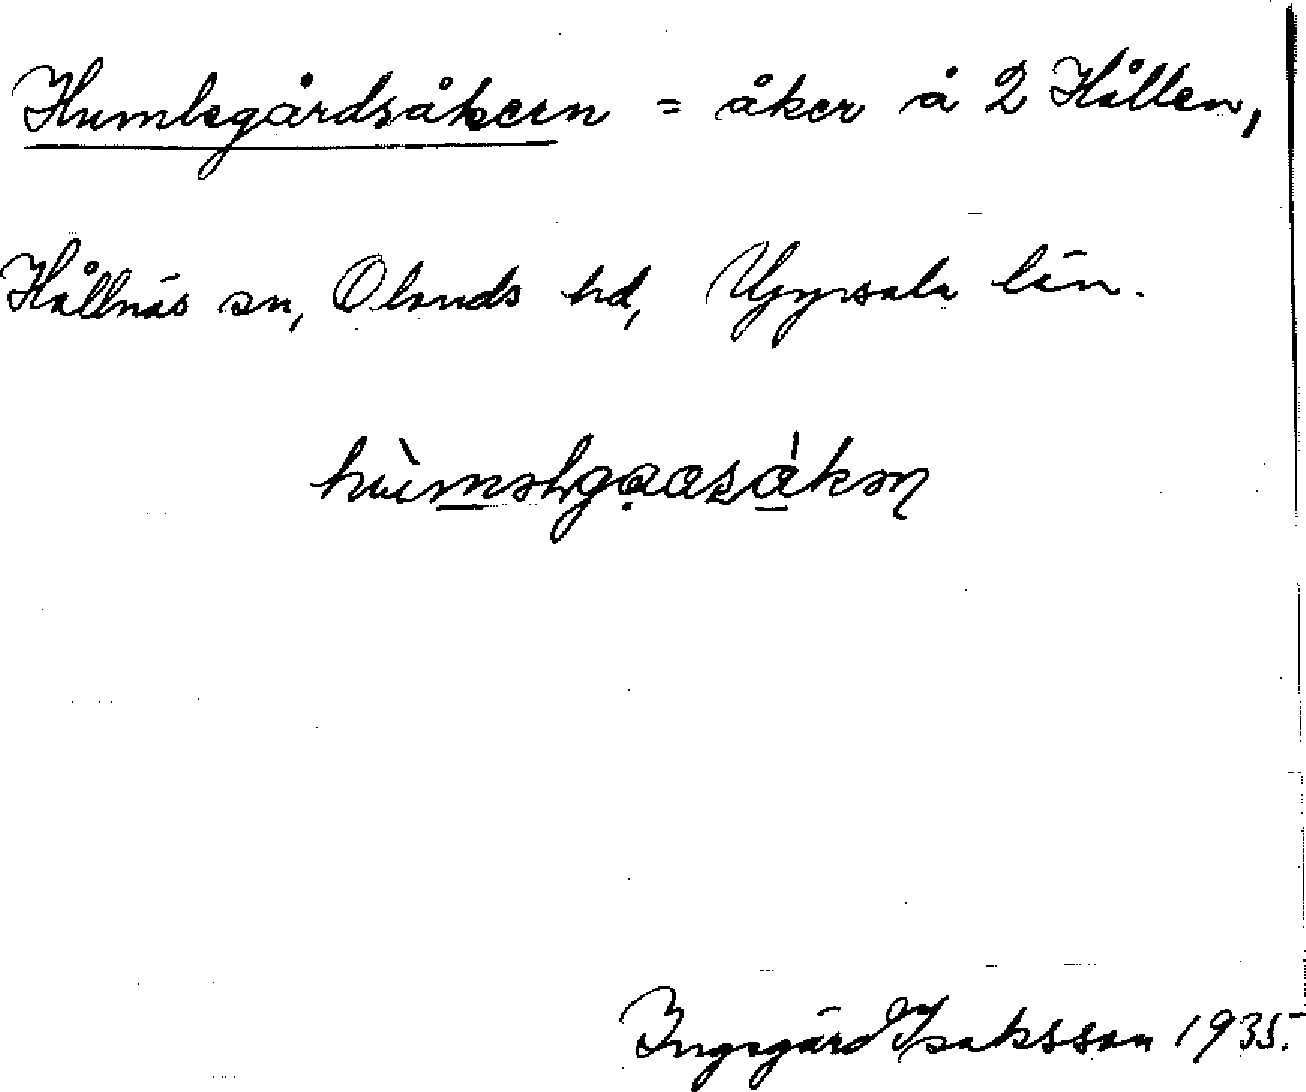 Humlegårdsåkern = åker å 2 Hållen,
Hållnäs sn, Olands hd, Uppsala län.
Ingegärd Isaksson 1935.